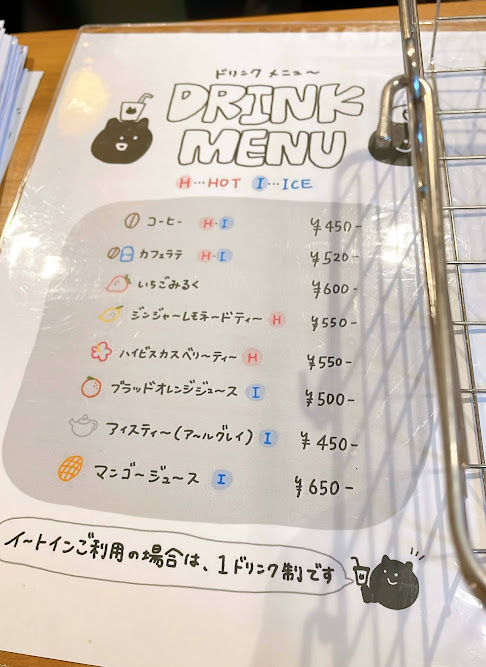 ドリンク メニュ〜
DRINK
MENU
H…HOT I…ICE
コーヒー H・I ¥450-
カフェラテ H・I ¥520-
いちごみるく ¥600-
ジンジャーレモネードティー H ¥550-
ハイビスカスベリーティー H ¥550-
ブラッドオレンジジュース I ¥500-
アイスティー(アールグレイ) I ¥450-
マンゴージュース I ¥650-
イートインご利用の場合は、1ドリンク制です